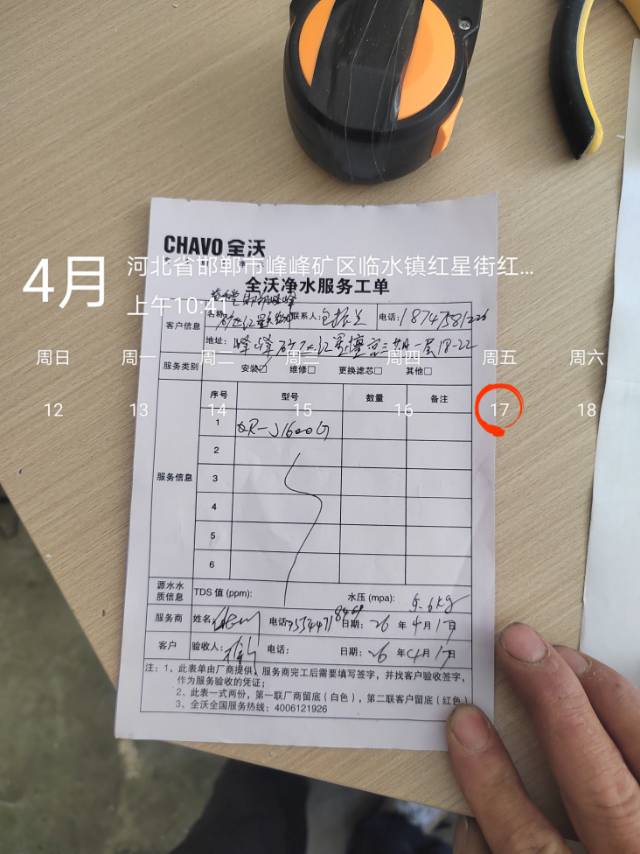 CHAVO 全沃
4月
河北省邯郸市峰峰矿区临水镇红星街红...
上午10:41
全沃净水服务工单
客户信息
名称:
联系人:
电话:
地址: 峰峰矿
18-22
周日 周一 周二 周三 周四 周五 周六
服务类别 安装 维修□ 更换滤芯□ 其他□
12 13 14 15 16 17 18
服务信息
序号 型号 数量 备注
1 J1600G
2
3
4
5
6
源水水质信息 TDS 值 (ppm): 水压 (mpa):
服务商 姓名: 电话 日期: 26 年 4月 17日
客户 验收人: 电话: 日期: 26 年 4月 17日
注: 1、此表单由厂商提供，服务商完工后需要填写签字，并找客户验收签字，
作为服务验收的凭证；
2、此表一式两份，第一联厂商留底（白色），第二联客户留底（红色）
3、全沃全国服务热线：4006121926